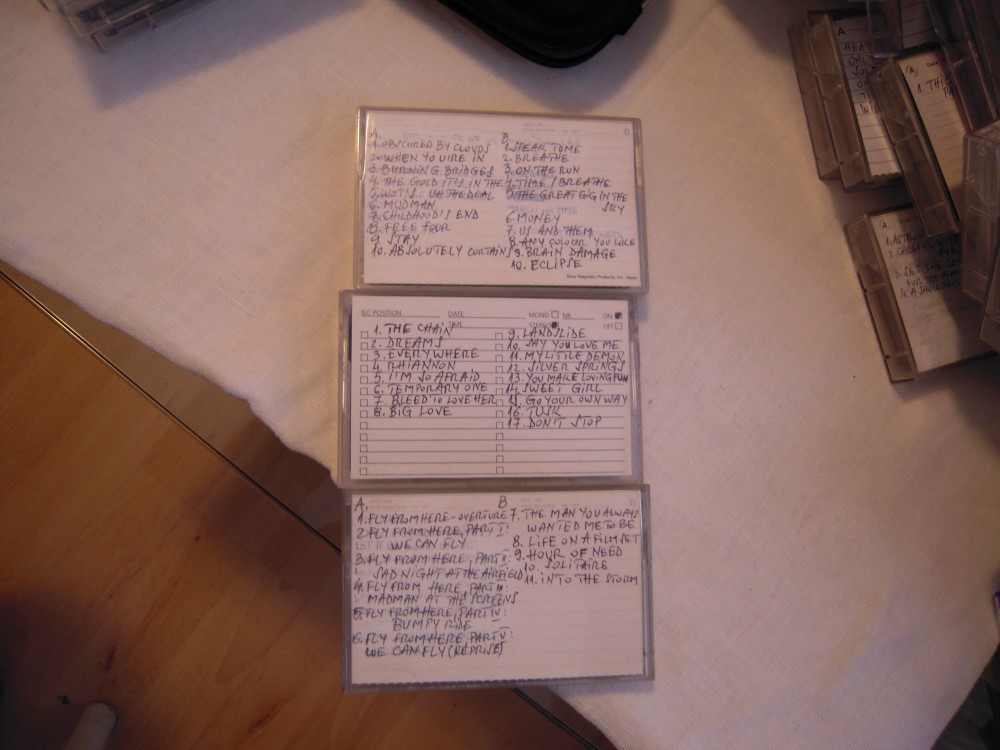 A.
1. OBSCURED BY CLOUDS
2. WHEN YOU'RE IN
3. BURNING BRIDGES
4. THE GOLD IT'S IN THE
5. WOT'S.. UH THE DEAL
6. MUDMAN
7. CHILDHOOD'S END
8. FREE FOUR
9. STAY
10. ABSOLUTELY CURTAINS
B
1. SPEAK TO ME
2. BREATHE
3. ON THE RUN
4. TIME / BREATHE
5. THE GREAT GIG IN THE
SKY
6. MONEY
7. US AND THEM
8. ANY COLOUR YOU LIKE
9. BRAIN DAMAGE
10. ECLIPSE
Sony Magnetic Products, Inc. Japan
IEC POSITION DATE MONO NR ON
TIME STEREO OFF
1. THE CHAIN
2. DREAMS
3. EVERYWHERE
4. RHIANNON
5. I'M SO AFRAID
6. TEMPORARY ONE
7. BLEED TO LOVE HER
8. BIG LOVE
9. LANDSLIDE
10. SAY YOU LOVE ME
11. MY LITTLE DEMON
12. SILVER SPRINGS
13. YOU MAKE LOVING FUN
14. SWEET GIRL
15. GO YOUR OWN WAY
16. TUSK
17. DON'T STOP
A.
1. FLY FROM HERE - OVERTURE
2. FLY FROM HERE, PART I:
WE CAN FLY
3. FLY FROM HERE, PART II:
SAD NIGHT AT THE AIRFIELD
4. FLY FROM HERE, PART III:
MADMAN AT THE SCREENS
5. FLY FROM HERE, PART IV:
BUMPY RIDE
6. FLY FROM HERE, PART V:
WE CAN FLY (REPRISE)
B
7. THE MAN YOU ALWAYS
WANTED ME TO BE
8. LIFE ON A FILM SET
9. HOUR OF NEED
10. SOLITAIRE
11. INTO THE STORM
A
A.
A.